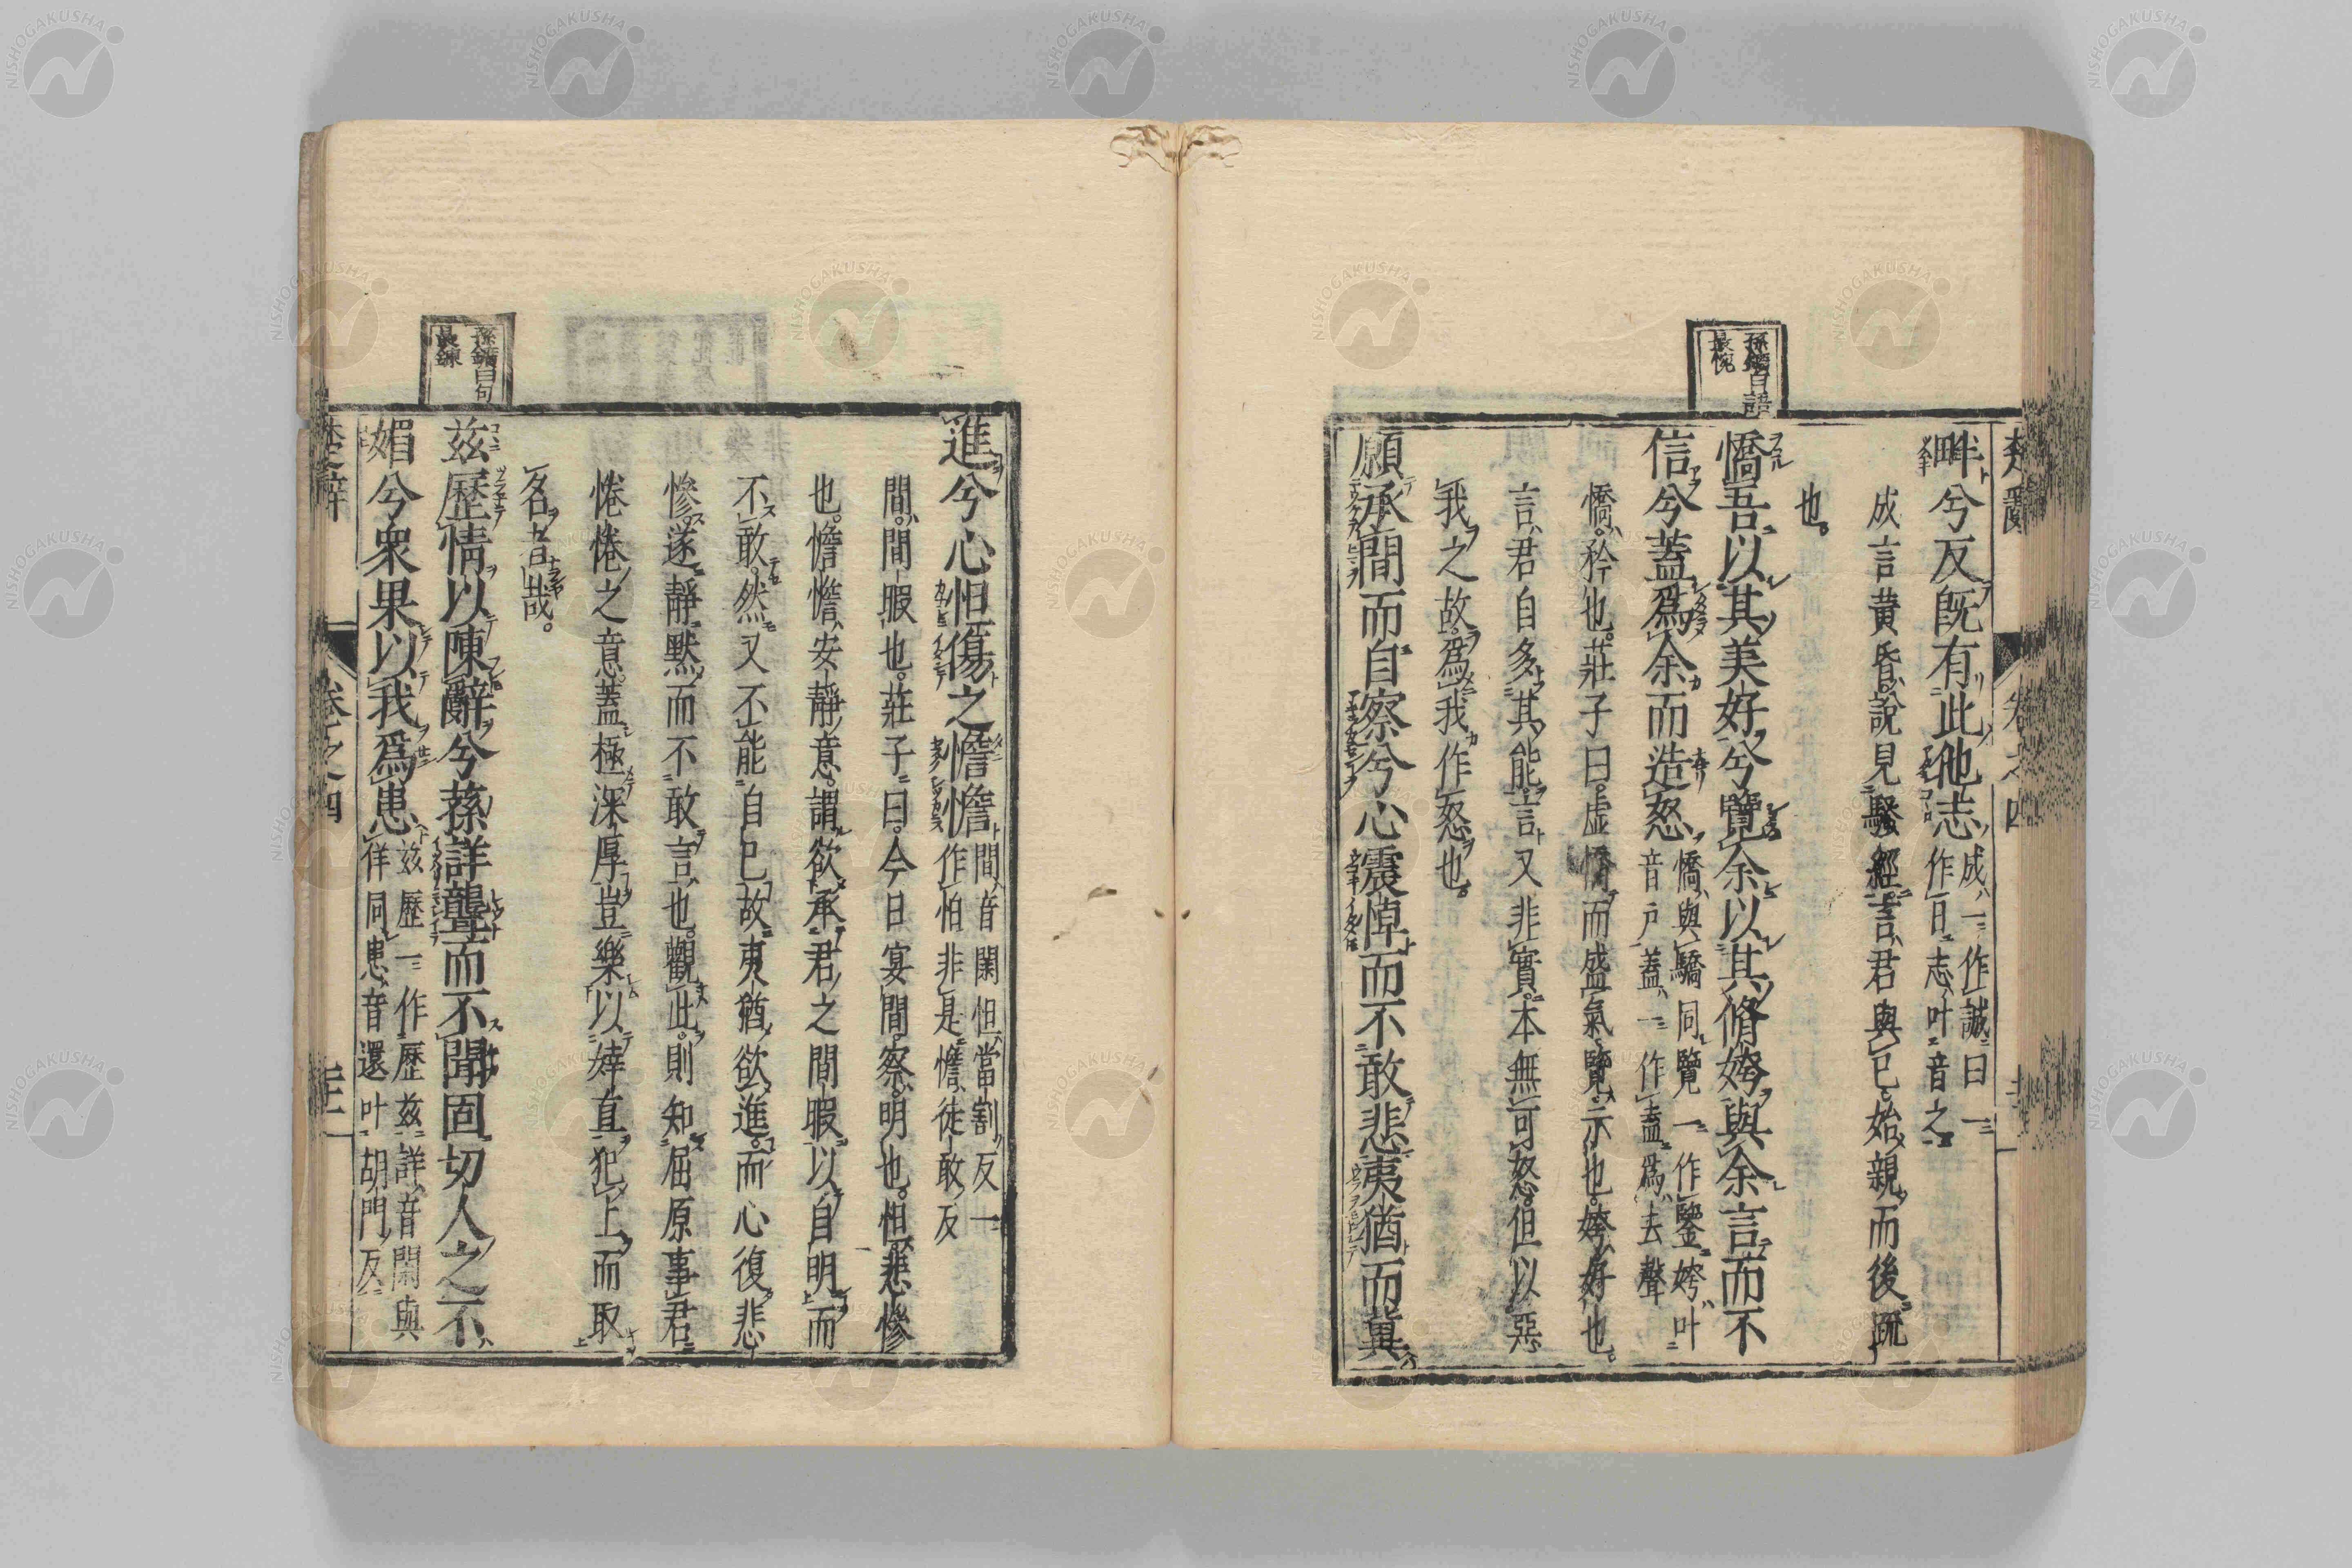 楚辭
卷之四
畔兮反旣有此他志成一作誠曰一
作日志叶音之
成言黄昏說見騷經言君與已始親而後疏
也。
孫鑛曰語
最惋
憍吾以其美好兮覽余以其脩姱與余言而不
信兮蓋爲余而造怒憍與驕同覽一作鑒姱叶
音戶蓋一作盍爲去聲
憍。矜也。莊子曰虛憍而盛氣覽示也。姱好也
言君自多其能言又非實本無可怒但以惡
我之故。爲我作怒也。
願承間而自察兮心震悼而不敢悲夷猶而冀
進兮心怛傷之憺憺間音閑怛當割反一
作怕非是憺徒敢反
間。間暇也。莊子曰。今日宴間。察。明也。怛悲慘
也。憺憺安靜意。謂欲承君之間暇以自明而
不敢。然又不能自已故夷猶欲進。而心復悲
慘。遂靜默而不敢言也。觀此。則知屈原事君
惓惓之意。蓋極深厚豈樂以婞直犯上而取
名者哉。
孫鑛曰句
最鍊
茲歷情以陳辭兮蓀詳聾而不聞固切人之不
媚兮衆果以我爲患茲歷一作歷茲詳音閑與
佯同患音還叶胡門反
楚辭
卷之四